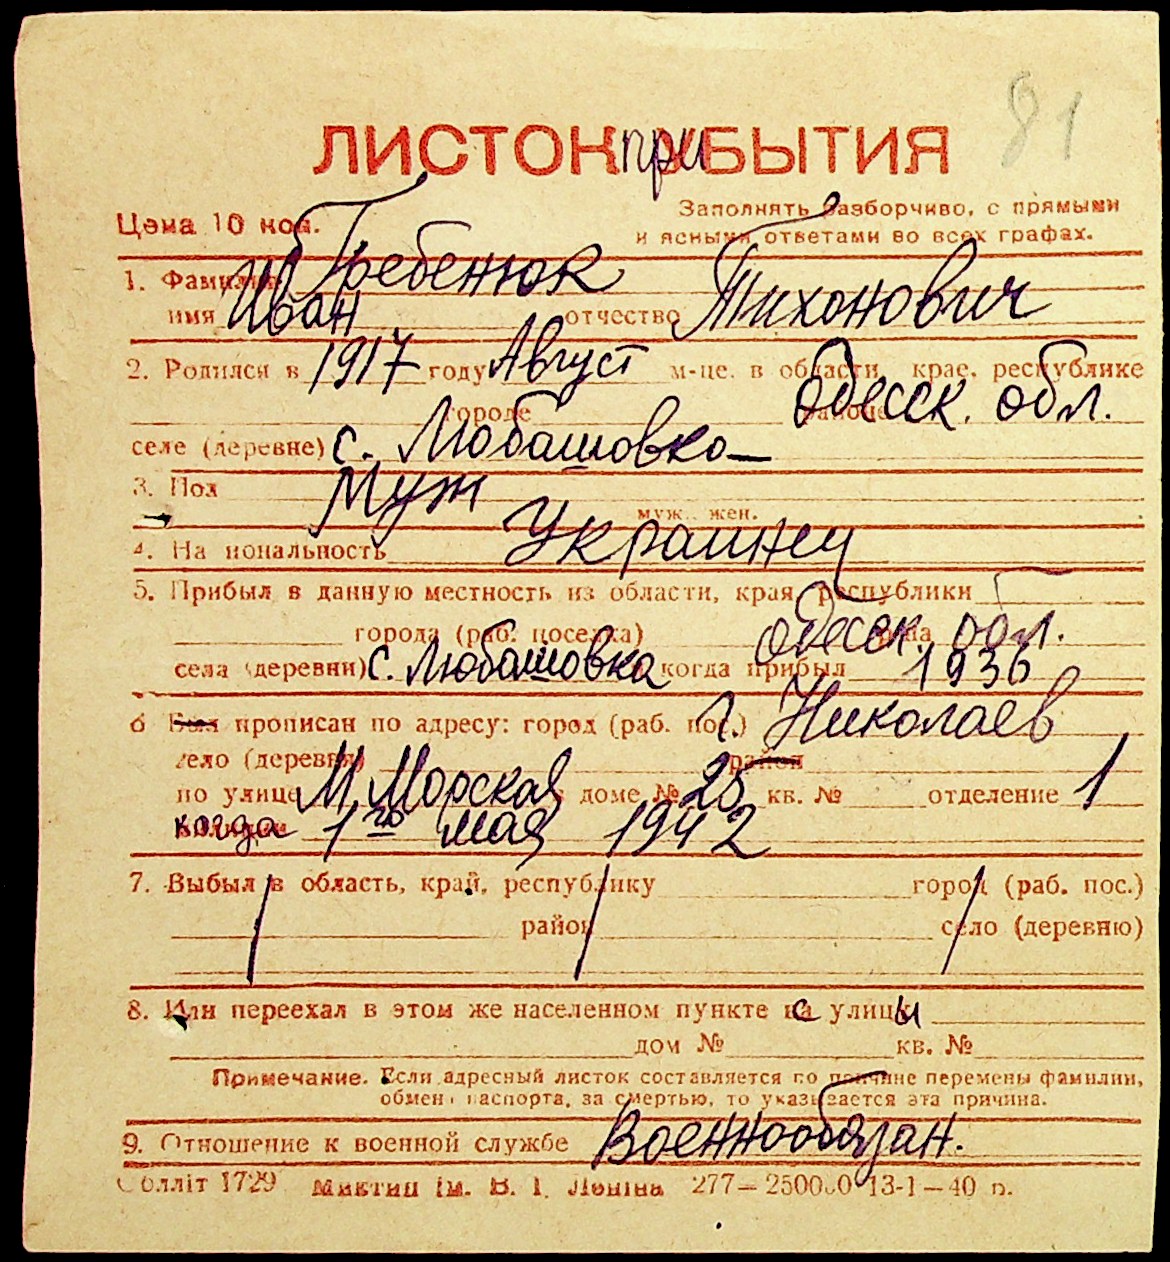 81
ЛИСТОК при БЫТИЯ
Цена 10 коп.
Заполнять разборчиво, с прямыми
и ясными ответами во всех графах.
1. Фамилия Гребенюк
имя Иван отчество Тихонович
2. Родился в 1917 году Август м-це. в области, крае, республике
городе районе Одесск. обл.
селе (деревне) с. Любашовка
3. Пол Муж
муж. жен.
4. На иональность Украинец
5. Прибыл в данную местность из области, края, республики
города (раб. поселка) Одесск. обл.
села (деревни) с. Любашовка когда прибыл 1936
6 Был прописан по адресу: город (раб. пос.) г. Николаев
село (деревня) район
по улице М. Морская в доме № 25 кв. № отделение 1
когда 1го мая 1942
7. Выбыл в область, край, республику город (раб. пос.)
район село (деревню)
8. Или переехал в этом же населенном пункте с улицы
дом № кв. №
Примечание. Если адресный листок составляется по причине перемены фамилии,
обмена паспорта, за смертью, то указывается эта причина.
9. Отношение к военной службе Военнообязан.
Обллiт 1729 Миктип iм. В. I. Ленiна 277—250000 13-1—40 р.